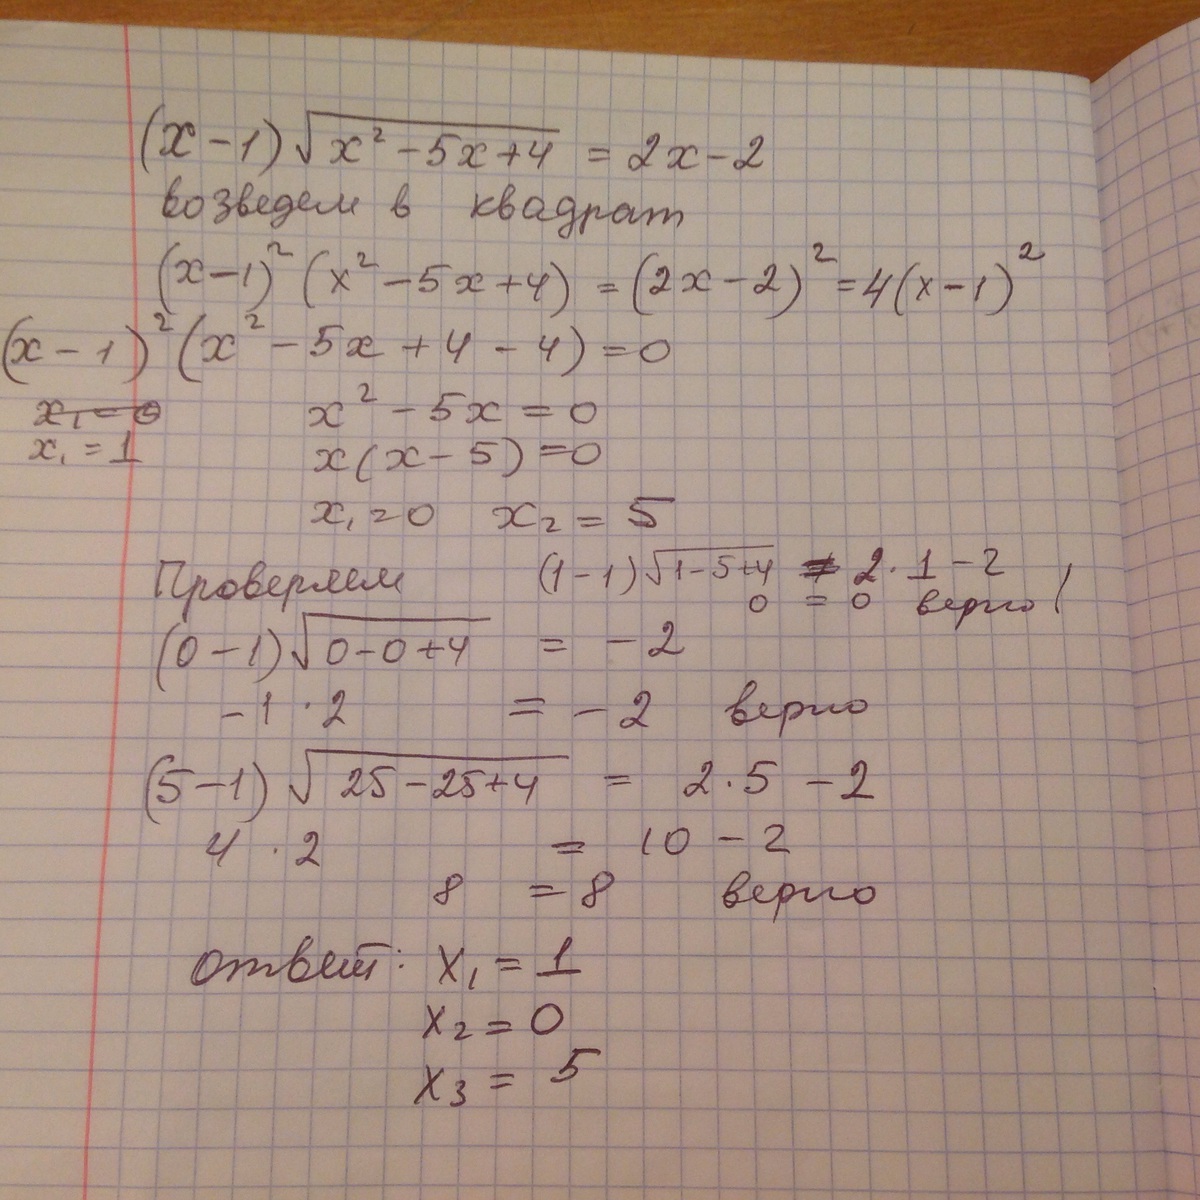 (x-1)√(x²-5x+4) = 2x-2
возведем в квадрат
(x-1)² (x²-5x+4) = (2x-2)² = 4(x-1)²
(x-1)² (x²-5x+4-4) = 0
x₁ = 0 x²-5x = 0
x₁ = 1 x(x-5) = 0
x₁ = 0 x₂ = 5
Проверяем (1-1)√(1-5+4) = 2·1-2
0 = 0 верно
(0-1)√(0-0+4) = -2
-1·2 = -2 верно
(5-1)√(25-25+4) = 2·5-2
4·2 = 10-2
8 = 8 верно
ответ: x₁ = 1
x₂ = 0
x₃ = 5